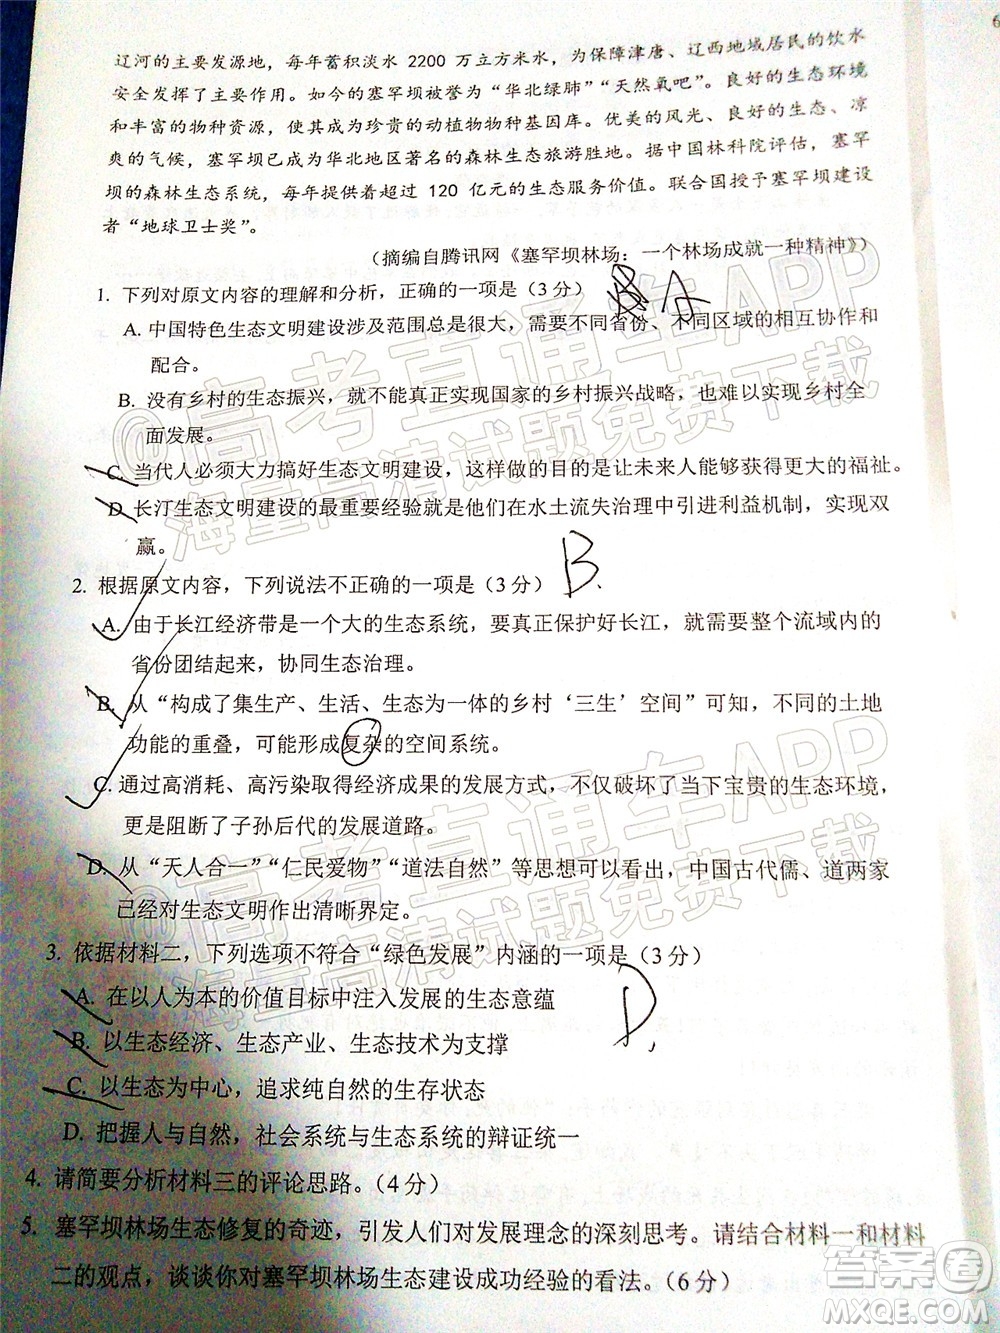 辽河的主要发源地，每年蓄积淡水 2200 万立方米水，为保障津唐、辽西地域居民的饮水
安全发挥了主要作用。如今的塞罕坝被誉为“华北绿肺”“天然氧吧”。良好的生态环境
和丰富的物种资源，使其成为珍贵的动植物物种基因库。优美的风光、良好的生态、凉
爽的气候，塞罕坝已成为华北地区著名的森林生态旅游胜地。据中国林科院评估，塞罕
坝的森林生态系统，每年提供着超过 120 亿元的生态服务价值。联合国授予塞罕坝建设
者“地球卫士奖”。
（摘编自腾讯网《塞罕坝林场：一个林场成就一种精神》）
1. 下列对原文内容的理解和分析，正确的一项是（3 分） B A
A. 中国特色生态文明建设涉及范围总是很大，需要不同省份、不同区域的相互协作和
配合。
B. 没有乡村的生态振兴，就不能真正实现国家的乡村振兴战略，也难以实现乡村全
面发展。
C. 当代人必须大力搞好生态文明建设，这样做的目的是让未来人能够获得更大的福祉。
D. 长汀生态文明建设的最重要经验就是在水土流失治理中引进利益机制，实现双
赢。
2. 根据原文内容，下列说法不正确的一项是（3 分） B
A. 由于长江经济带是一个大的生态系统，要真正保护好长江，就需要整个流域内的
省份团结起来，协同生态治理。
B. 从“构成了集生产、生活、生态为一体的乡村‘三生’空间”可知，不同的土地
功能的重叠，可能形成复杂的空间系统。
C. 通过高消耗、高污染取得经济成果的发展方式，不仅破坏了当下宝贵的生态环境，
更是阻断了子孙后代的发展道路。
D. 从“天人合一”“仁民爱物”“道法自然”等思想可以看出，中国古代儒、道两家
已经对生态文明作出清晰界定。
3. 依据材料二，下列选项不符合“绿色发展”内涵的一项是（3 分） D
A. 在以人为本的价值目标中注入发展的生态意蕴
B. 以生态经济、生态产业、生态技术为支撑
C. 以生态为中心，追求纯自然的生存状态
D. 把握人与自然，社会系统与生态系统的辩证统一
4. 请简要分析材料三的评论思路。（4 分）
5. 塞罕坝林场生态修复的奇迹，引发人们对发展理念的深刻思考。请结合材料一和材料
二的观点，谈谈你对塞罕坝林场生态建设成功经验的看法。（6 分）
@高考直通车APP
海量高清试题免费下载
@高考直通车APP
海量高清试题免费下载
答案圈
MXQE.COM
6